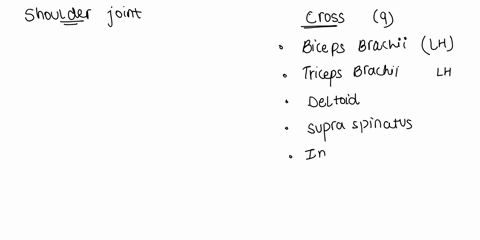 Shoulder joint
Cross (9)
• Biceps Brachii (LH)
• Triceps Brachii LH
• Deltoid
• Supra spinatus
• In